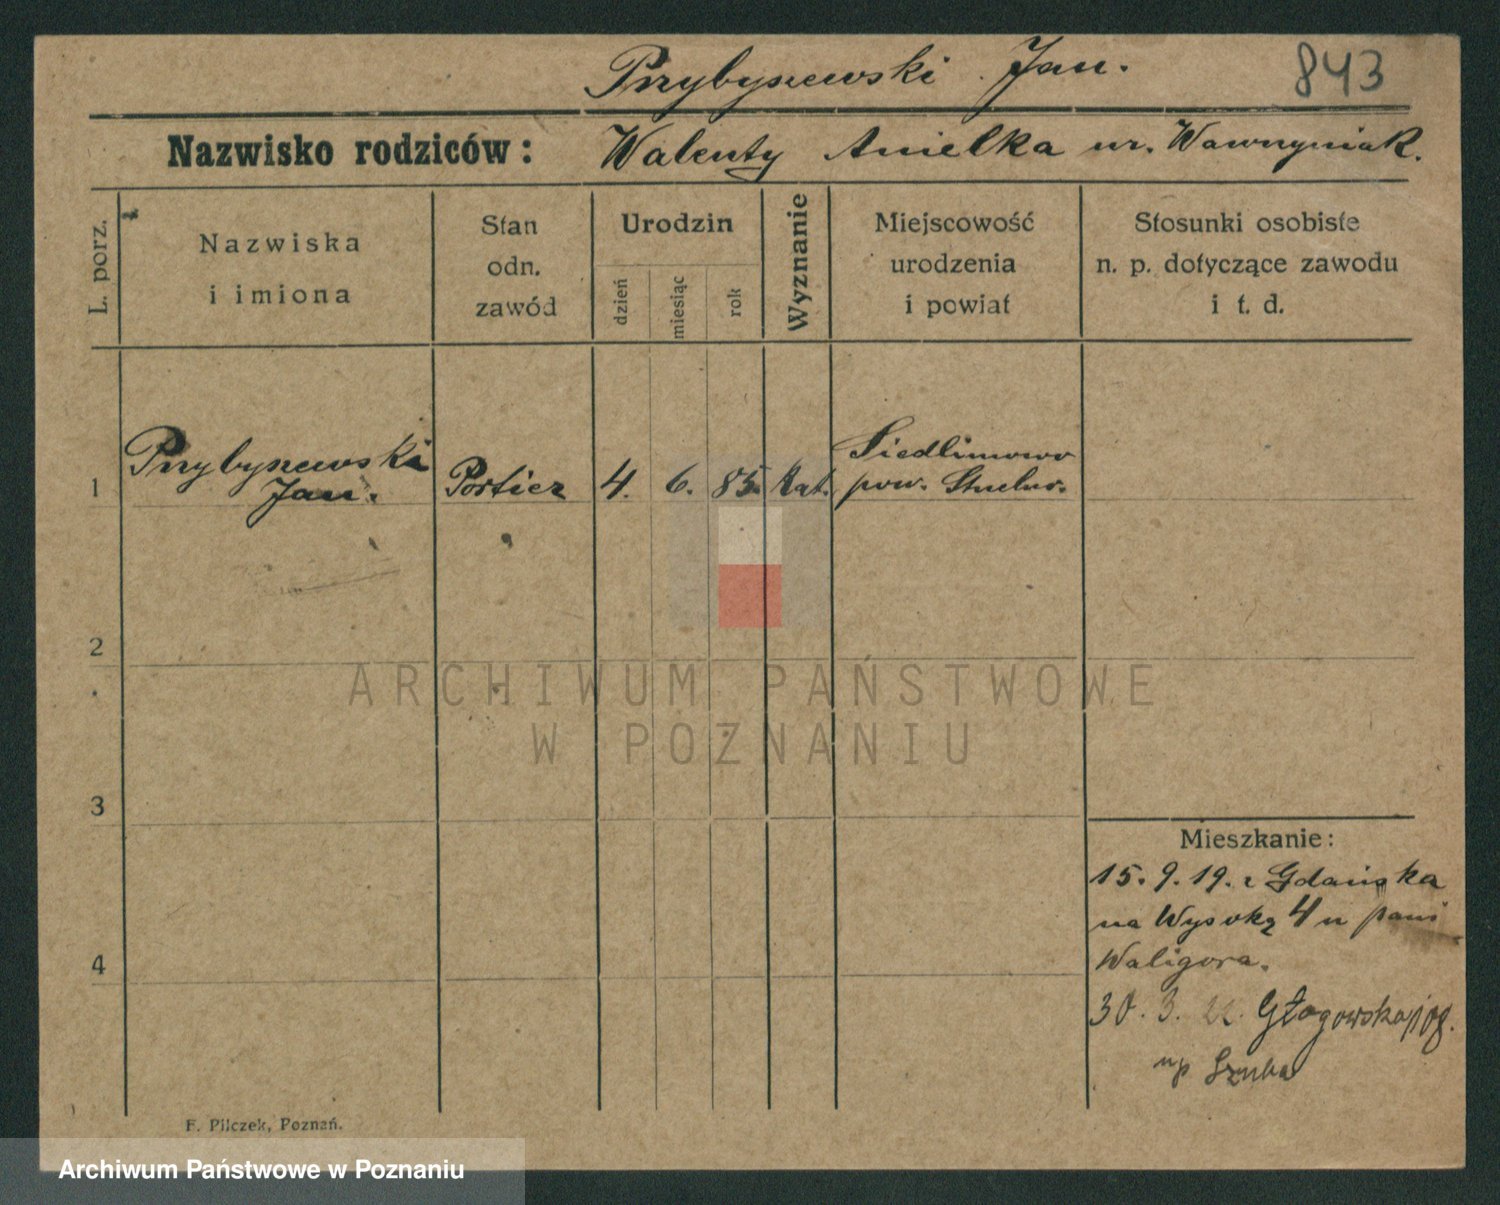 Przybyszewski Jan.
843
Nazwisko rodziców: Walenty Anielka ur. Wawrzyniak.
L. porz.
Nazwiska
i imiona
Stan
odn.
zawód
Urodzin
dzień
miesiąc
rok
Wyznanie
Miejscowość
urodzenia
i powiat
Stosunki osobiste
n. p. dotyczące zawodu
i t. d.
1
Przybyszewski
Jan.
Portier
4. 6. 85. Kat.
Siedlimowo
pow. Strzelno.
2
3
4
Mieszkanie:
15. 9. 19. z Gdańska
na Wysoką 4 u pani
Waligora.
30. 3. 22. Głogowska 108.
np Szuba
F. Pilczek, Poznań.
ARCHIWUM PAŃSTWOWE
W POZNANIU
Archiwum Państwowe w Poznaniu